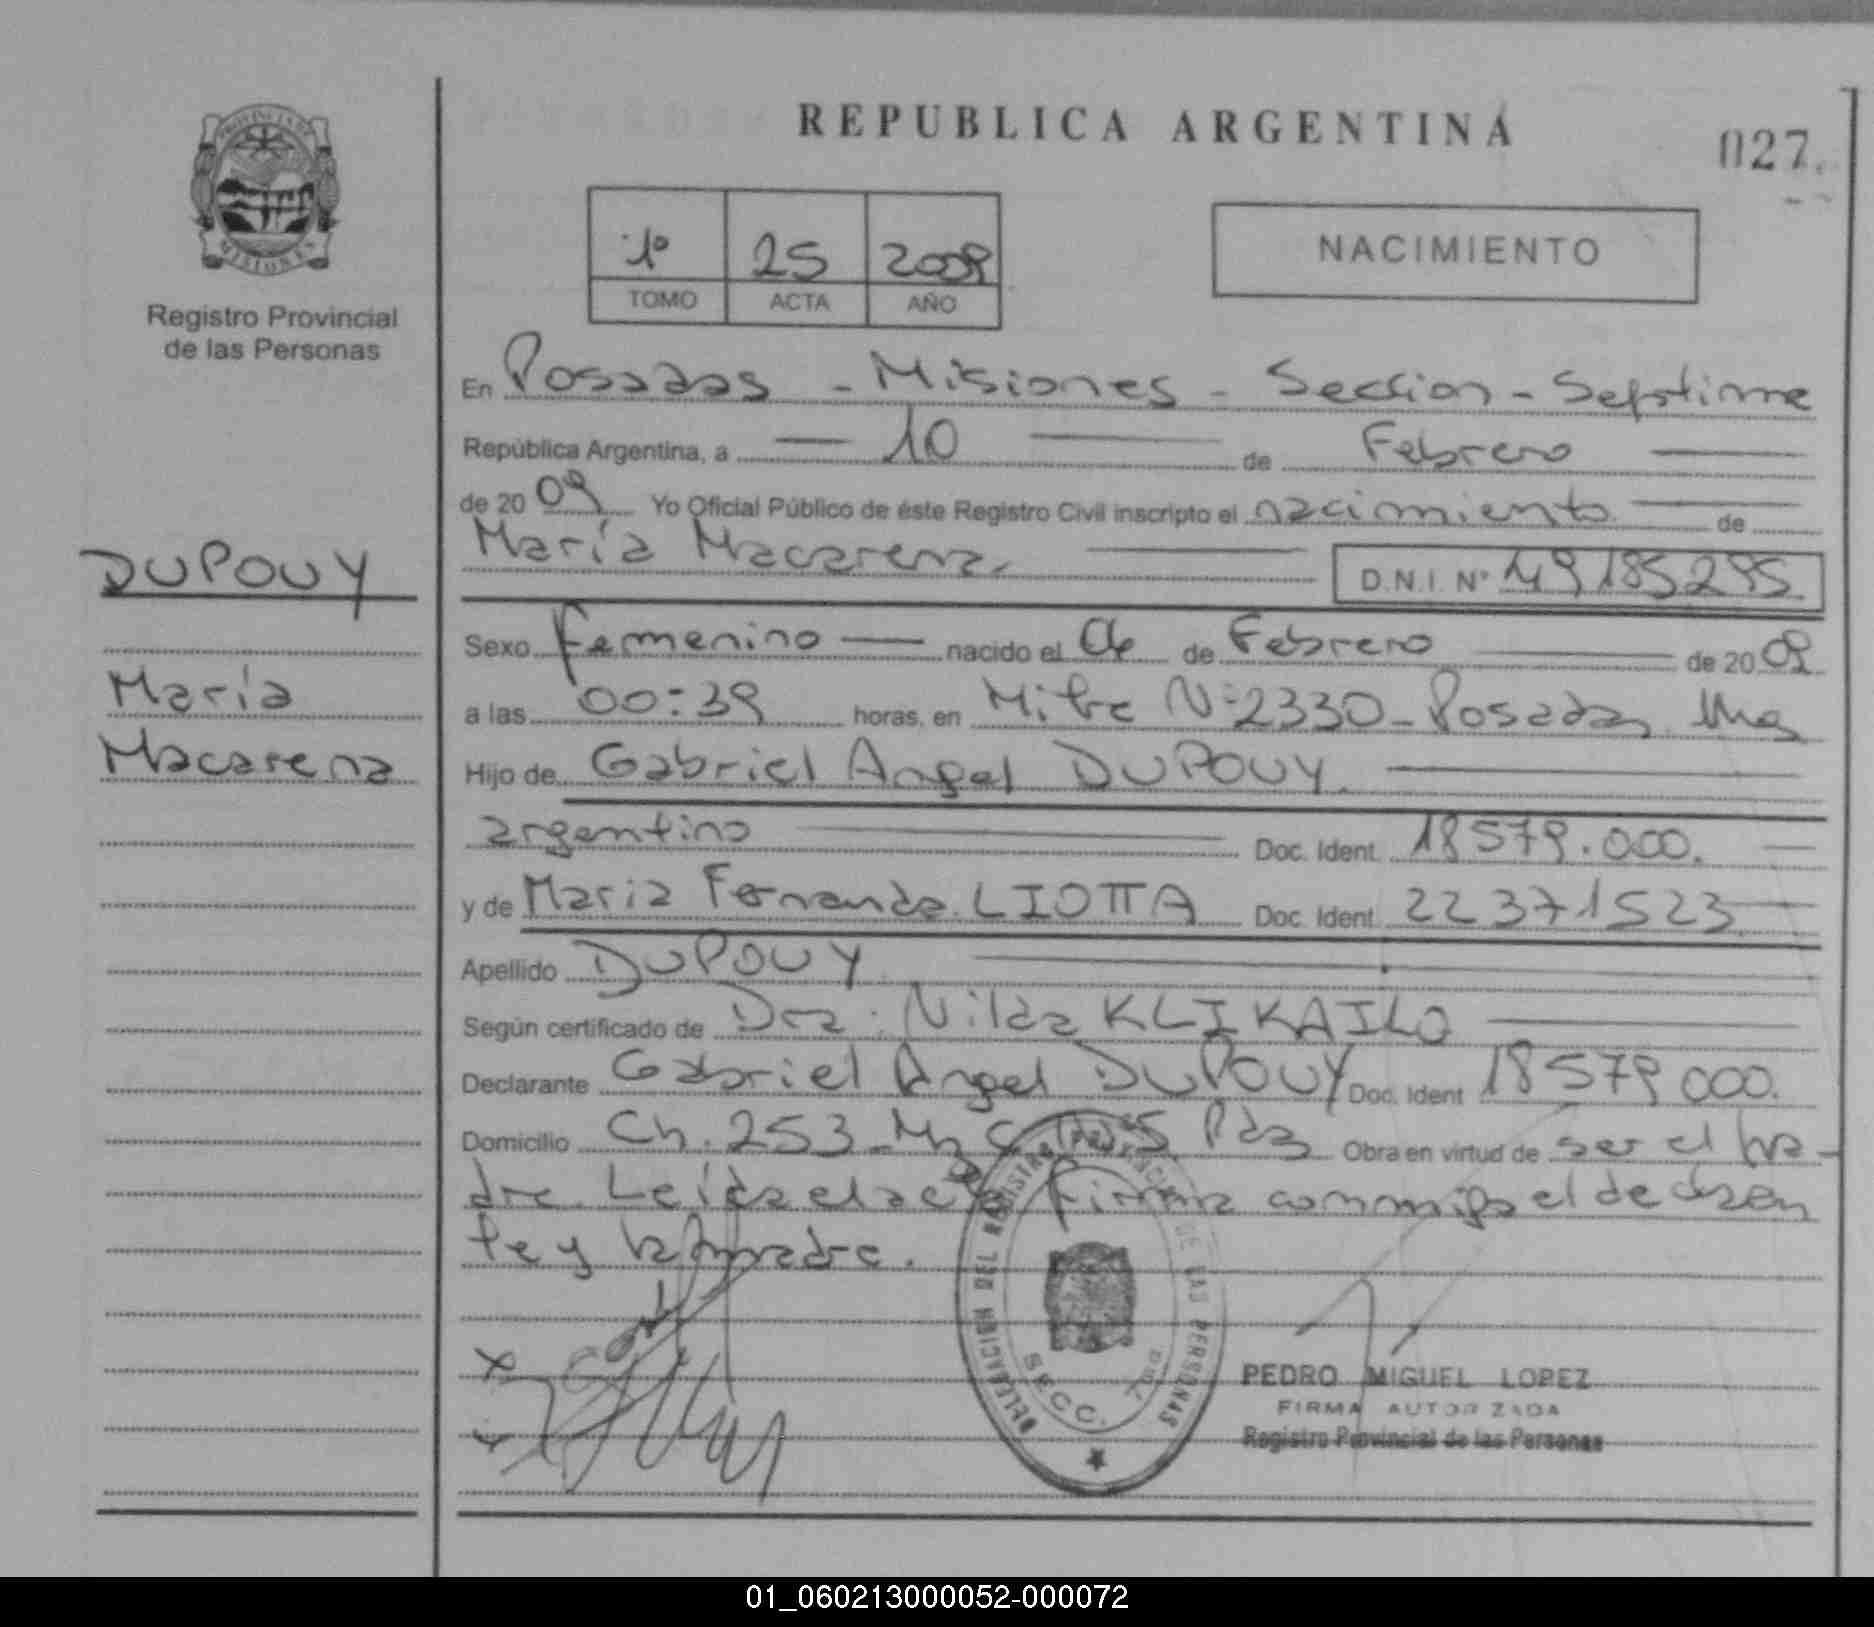 PROVINCIA DE
MISIONES
Registro Provincial
de las Personas
DUPOUY
María
Macarena
REPUBLICA ARGENTINA
027.
1º 25 2009
TOMO ACTA AÑO
NACIMIENTO
En Posadas - Misiones - Seccion - Septima
República Argentina, a 10 de Febrero
de 2009 Yo Oficial Público de éste Registro Civil inscripto el nacimiento de
María Macarena. D.N.I. Nº 49185295
Sexo Femenino nacido el de Febrero de 2009
a las 00:39 horas, en Mitre Nº 2330 - Posadas Mnes
Hijo de Gabriel Angel DUPOUY.
argentino Doc. Ident. 18579.000.
y de Maria Fernanda LIOTTA Doc. Ident. 22371523
Apellido DUPOUY
Según certificado de Dra. Nilda KLIKAILO
Declarante Gabriel Angel DUPOUY Doc. Ident 18579000.
Domicilio Ch. 253 - Mz C Pdas Obra en virtud de ser el pa-
dre. Leída el acta firma conmigo el declaran
te y la madre.
DELEGACION DEL REGISTRO PROVINCIAL DE LAS PERSONAS
SECC. 7ma
PEDRO MIGUEL LOPEZ
FIRMA AUTORIZADA
Registro Provincial de las Personas
01_060213000052-000072